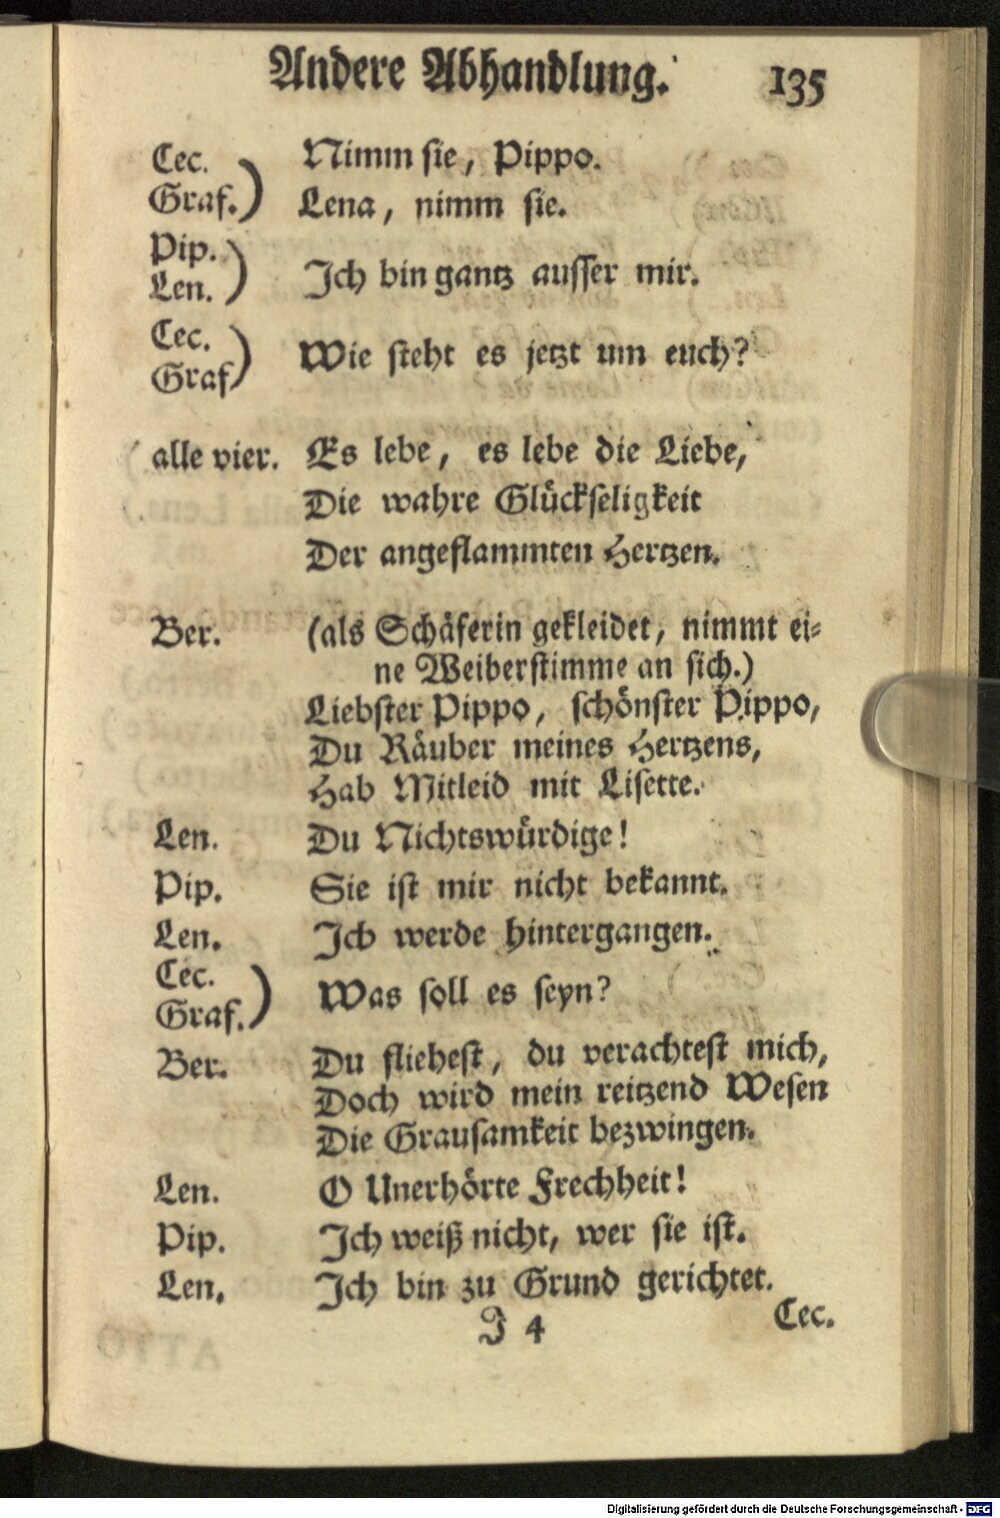 Andere Abhandlung. 135
Cec. Nimm sie, Pippo.
Graf.) Lena, nimm sie.
Pip.
Len.) Ich bin gantz ausser mir.
Cec.
Graf) Wie steht es jetzt um euch?
alle vier. Es lebe, es lebe die Liebe,
Die wahre Glückseligkeit
Der angeflammten Hertzen.
Ber. (als Schäferin gekleidet, nimmt ei-
ne Weiberstimme an sich.)
Liebster Pippo, schönster Pippo,
Du Räuber meines Hertzens,
Hab Mitleid mit Lisette.
Len. Du Nichtswürdige!
Pip. Sie ist mir nicht bekannt.
Len. Ich werde hintergangen.
Cec.
Graf.) Was soll es seyn?
Ber. Du fliehest, du verachtest mich,
Doch wird mein reitzend Wesen
Die Grausamkeit bezwingen.
Len. O Unerhörte Frechheit!
Pip. Ich weiß nicht, wer sie ist.
Len. Ich bin zu Grund gerichtet.
J 4 Cec.
Digitalisierung gefördert durch die Deutsche Forschungsgemeinschaft - DFG